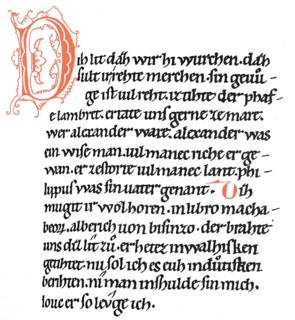 Diz lit daz wir hi wurchen. daz
sult ir rehte merchen. sin gevů-
ge ist uil reht. iz tihte der phaf-
fe lambret. er tate uns gerne ze mare.
wer alexander ware. alexander was
ein wise man. uil manec riche er ge-
wan. er zestorte uil manec lant. phi-
lippus was sin uater genant. Diz
mugit ir wol horen. in libro macha-
beoꝝ. alberich uon bisinzo. der brahte
uns diz lit zů. er hetez in walhisken
getihtet. nu sol ich es euh in důtisken
berihten. niman inshulde sin mich.
louc er so leuge ich.